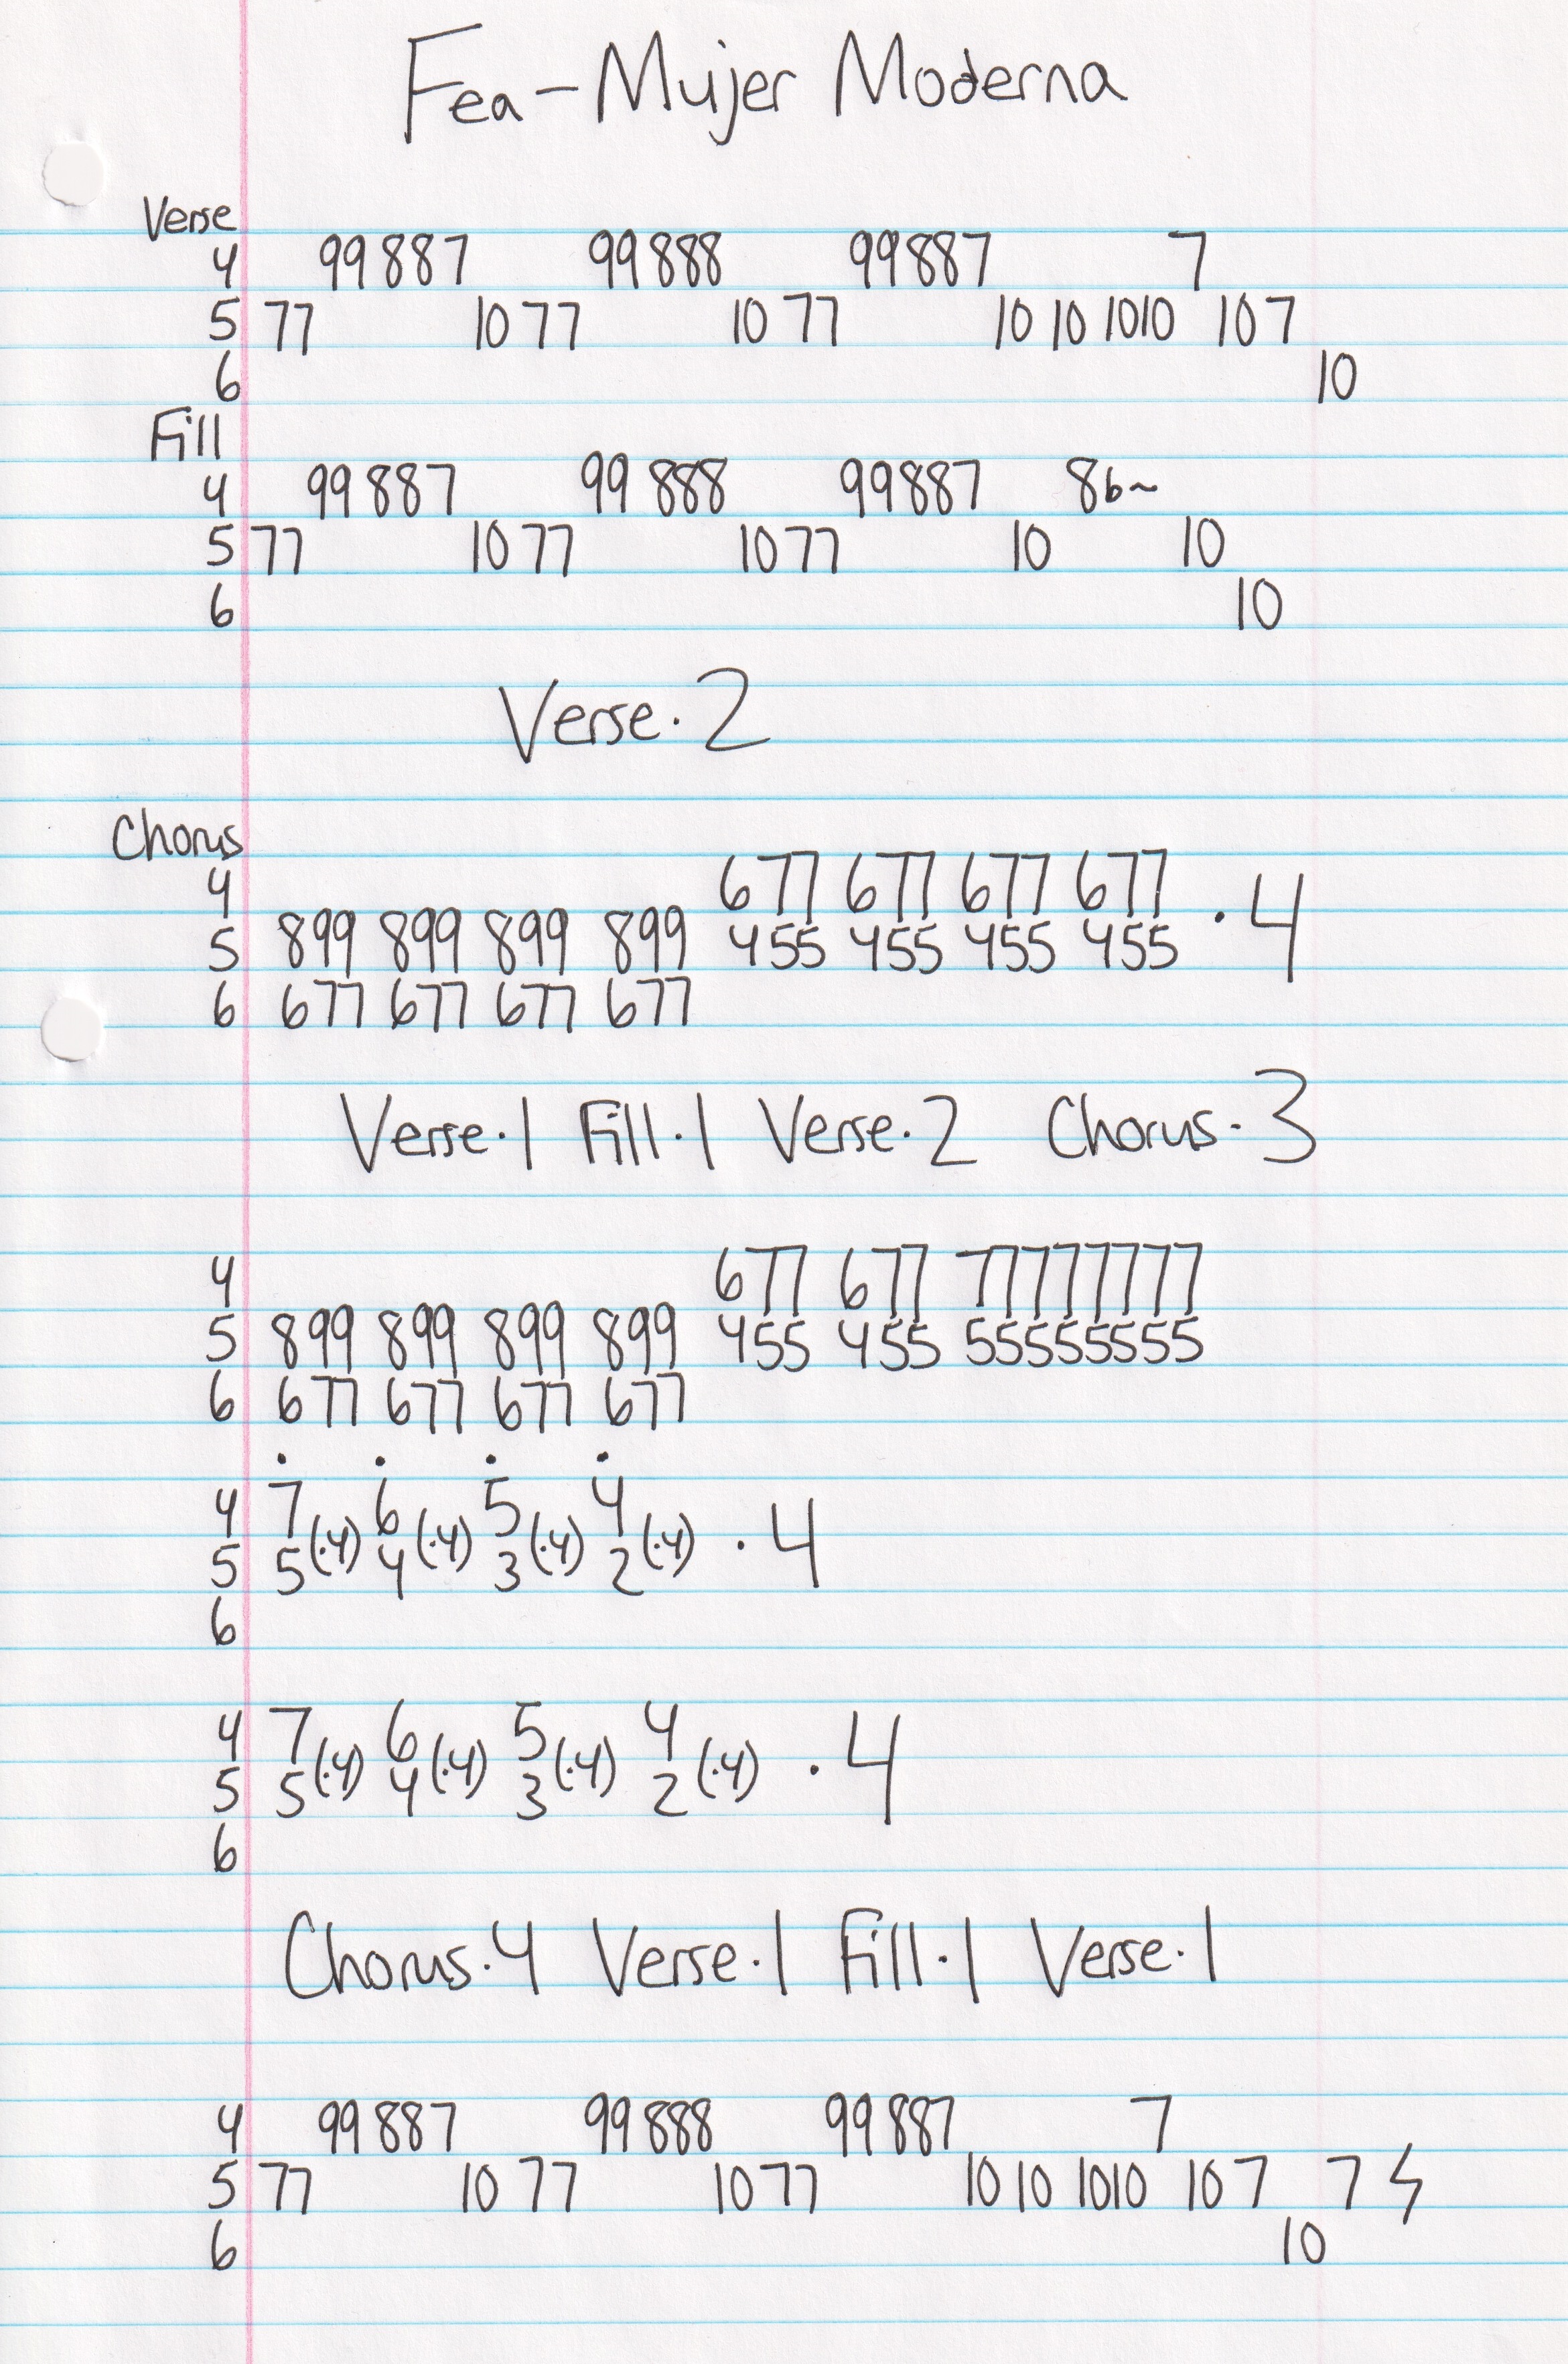 Fea - Mujer Moderna
Verse
4 99 887 99 888 99 887 7
5 77 10 77 10 77 10 10 10 10 10 7
6 10
Fill
4 99 887 99 888 99 887 8 6~
5 77 10 77 10 77 10 10
6 10
Verse · 2
Chorus
4 677 677 677 677
5 899 899 899 899 455 455 455 455 · 4
6 677 677 677 677
Verse · 1 Fill · 1 Verse · 2 Chorus · 3
4 677 677 77777777
5 899 899 899 899 455 455 55555555
6 677 677 677 677
4 7 6 5 4
5 5 (·4) 4 (·4) 3 (·4) 2 (·4) · 4
6
4 7 6 5 4
5 5 (·4) 4 (·4) 3 (·4) 2 (·4) · 4
6
Chorus · 4 Verse · 1 Fill · 1 Verse · 1
4 99 887 99 888 99 887 7
5 77 10 77 10 77 10 10 10 10 10 7 7
6 10